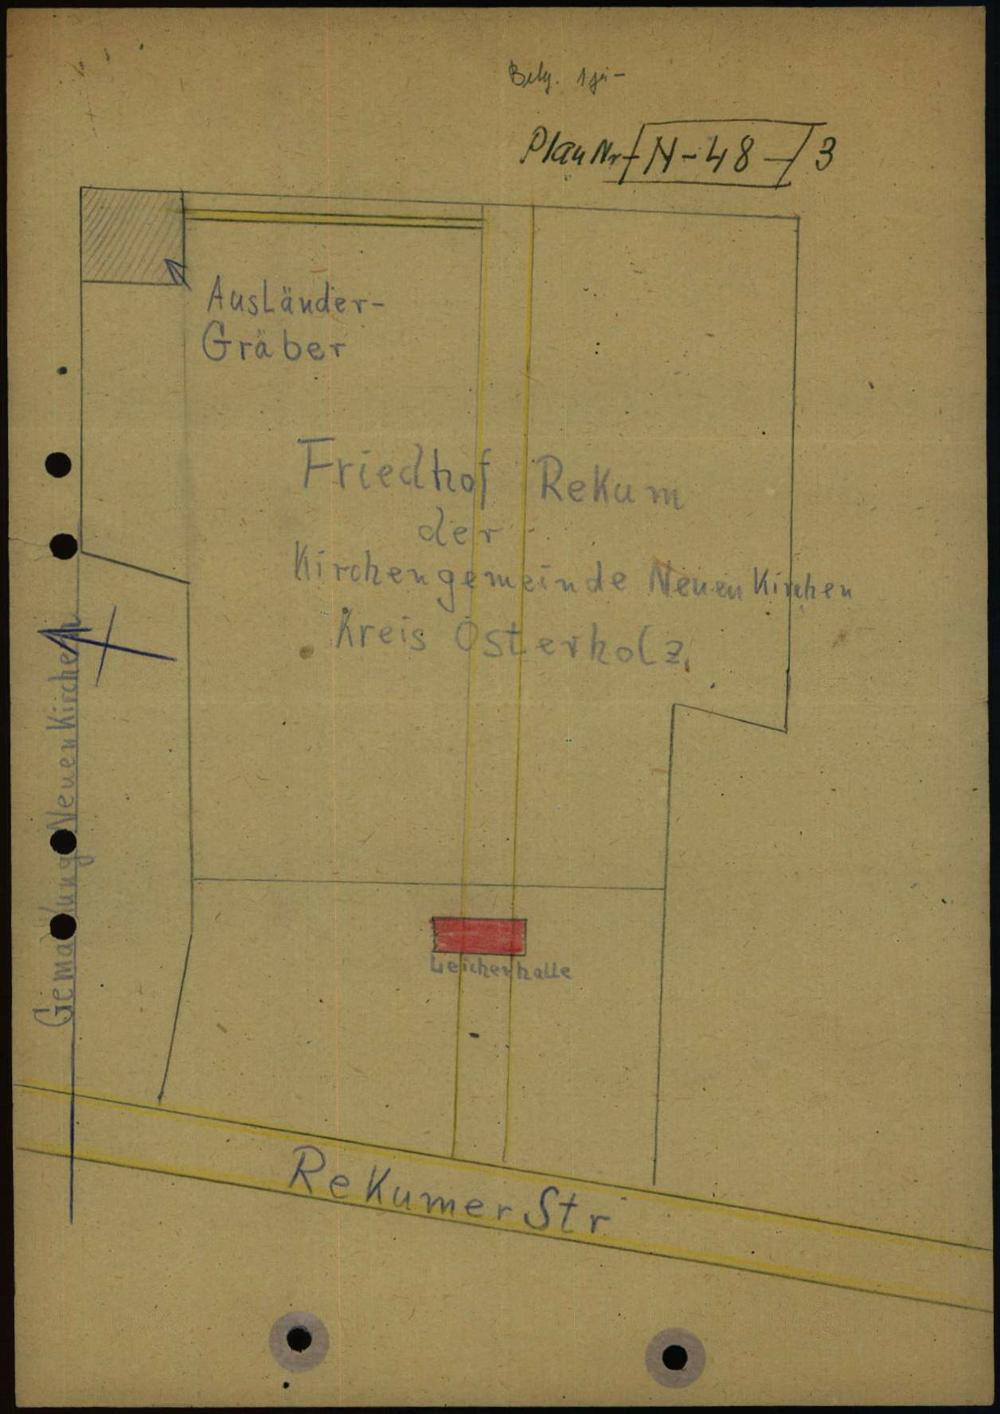 Plan Nr. N-48-/3
Ausländer-
Gräber
Friedhof Rekum
der
Kirchengemeinde Neuenkirchen
Kreis Osterholz.
Gemarkung Neuenkirchen
Leichenhalle
Rekumer Str